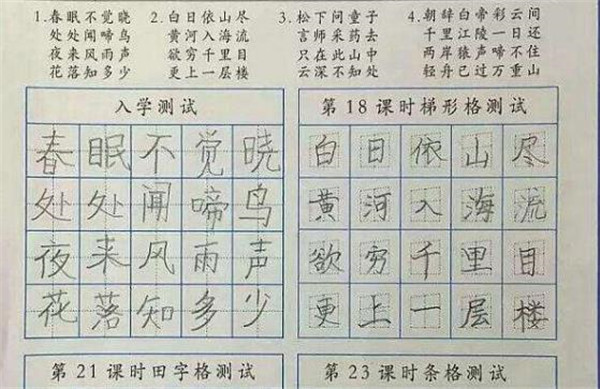 1.春眠不觉晓
处处闻啼鸟
夜来风雨声
花落知多少
2.白日依山尽
黄河入海流
欲穷千里目
更上一层楼
3.松下问童子
言师采药去
只在此山中
云深不知处
4.朝辞白帝彩云间
千里江陵一日还
两岸猿声啼不住
轻舟已过万重山
入学测试
春眠不觉晓
处处闻啼鸟
夜来风雨声
花落知多少
第18课时梯形格测试
白日依山尽
黄河入海流
欲穷千里目
更上一层楼
第21课时田字格测试
第23课时条格测试